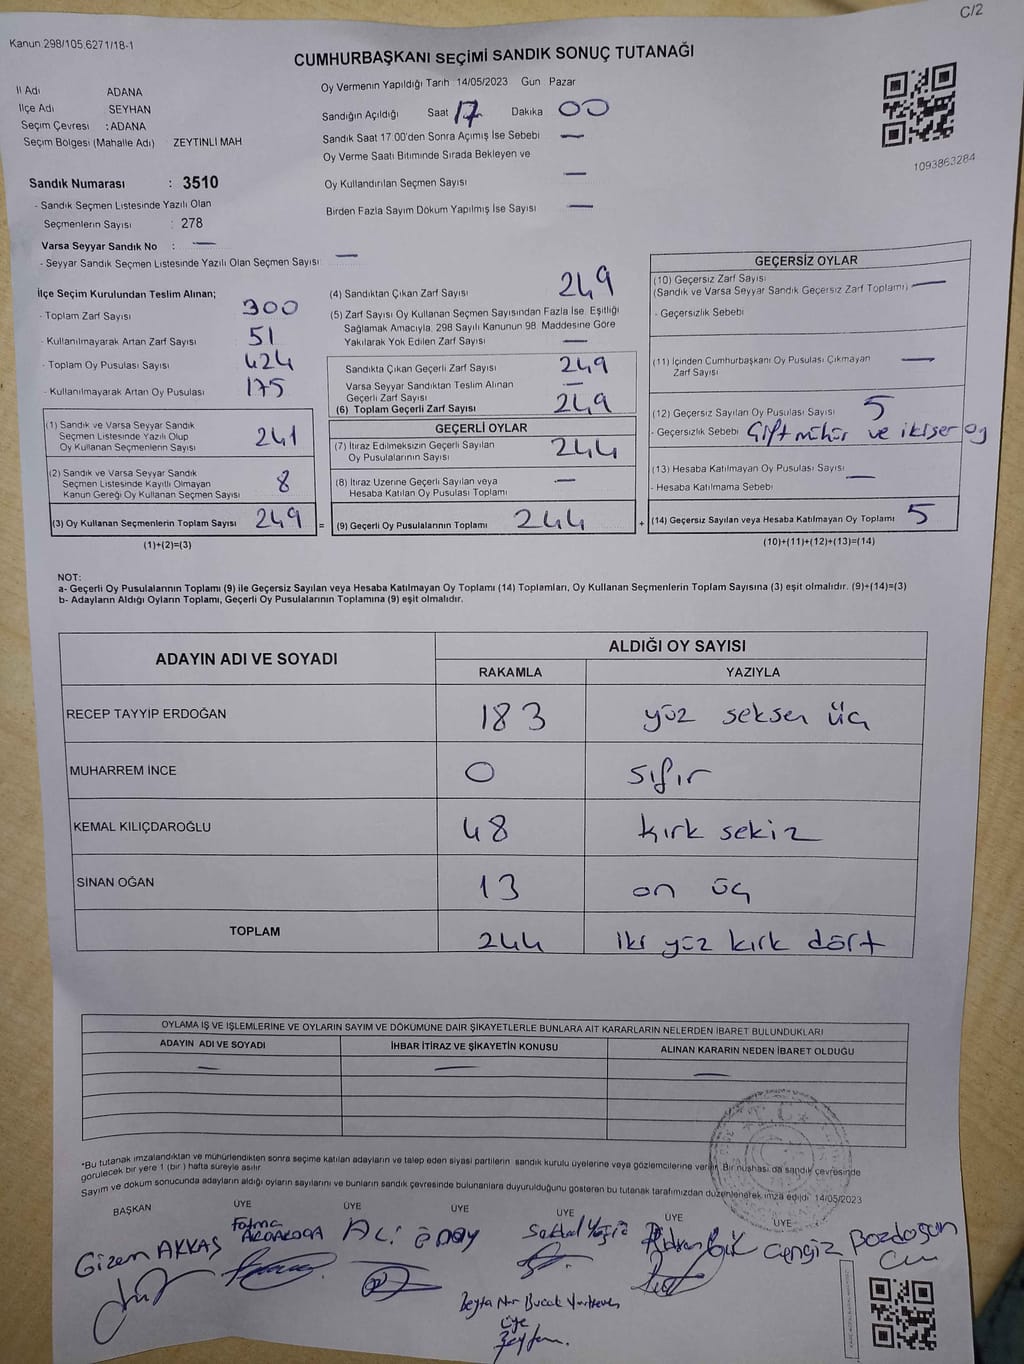 C/2
Kanun 298/105.6271/18-1
CUMHURBAŞKANI SEÇİMİ SANDIK SONUÇ TUTANAĞI
İl Adı ADANA
İlçe Adı SEYHAN
Seçim Çevresi : ADANA
Seçim Bölgesi (Mahalle Adı) ZEYTİNLİ MAH
Oy Vermenin Yapıldığı Tarih 14/05/2023 Gün Pazar
Sandığın Açıldığı Saat 17 Dakika 00
Sandık Saat 17.00'den Sonra Açımış İse Sebebi —
Oy Verme Saati Bitiminde Sırada Bekleyen ve
Oy Kullandırılan Seçmen Sayısı —
Birden Fazla Sayım Döküm Yapılmış İse Sayısı —
1093863284
Sandık Numarası : 3510
- Sandık Seçmen Listesinde Yazılı Olan
Seçmenlerin Sayısı : 278
Varsa Seyyar Sandık No : —
- Seyyar Sandık Seçmen Listesinde Yazılı Olan Seçmen Sayısı —
İlçe Seçim Kurulundan Teslim Alınan;
- Toplam Zarf Sayısı 300
- Kullanılmayarak Artan Zarf Sayısı 51
- Toplam Oy Pusulası Sayısı 424
- Kullanılmayarak Artan Oy Pusulası 175
(1) Sandık ve Varsa Seyyar Sandık
Seçmen Listesinde Yazılı Olup
Oy Kullanan Seçmenlerin Sayısı 241
(2) Sandık ve Varsa Seyyar Sandık
Seçmen Listesinde Kayıtlı Olmayan
Kanun Gereği Oy Kullanan Seçmen Sayısı 8
(3) Oy Kullanan Seçmenlerin Toplam Sayısı 249 =
(1)+(2)=(3)
(4) Sandıktan Çıkan Zarf Sayısı 249
(5) Zarf Sayısı Oy Kullanan Seçmen Sayısından Fazla İse, Eşitliği
Sağlamak Amacıyla, 298 Sayılı Kanunun 98. Maddesine Göre
Yakılarak Yok Edilen Zarf Sayısı —
Sandıkta Çıkan Geçerli Zarf Sayısı 249
Varsa Seyyar Sandıktan Teslim Alınan
Geçerli Zarf Sayısı —
(6) Toplam Geçerli Zarf Sayısı 249
GEÇERLİ OYLAR
(7) İtiraz Edilmeksizin Geçerli Sayılan
Oy Pusulalarının Sayısı 244
(8) İtiraz Üzerine Geçerli Sayılan veya
Hesaba Katılan Oy Pusulası Toplamı —
(9) Geçerli Oy Pusulalarının Toplamı 244 +
GEÇERSİZ OYLAR
(10) Geçersiz Zarf Sayısı
(Sandık ve Varsa Seyyar Sandık Geçersiz Zarf Toplamı) —
- Geçersizlik Sebebi
(11) İçinden Cumhurbaşkanı Oy Pusulası Çıkmayan
Zarf Sayısı —
(12) Geçersiz Sayılan Oy Pusulası Sayısı 5
- Geçersizlik Sebebi Çift mühür ve ikişer oy
(13) Hesaba Katılmayan Oy Pusulası Sayısı —
- Hesaba Katılmama Sebebi
(14) Geçersiz Sayılan veya Hesaba Katılmayan Oy Toplamı 5
(10)+(11)+(12)+(13)=(14)
NOT:
a- Geçerli Oy Pusulalarının Toplamı (9) ile Geçersiz Sayılan veya Hesaba Katılmayan Oy Toplamı (14) Toplamları, Oy Kullanan Seçmenlerin Toplam Sayısına (3) eşit olmalıdır. (9)+(14)=(3)
b- Adayların Aldığı Oyların Toplamı, Geçerli Oy Pusulalarının Toplamına (9) eşit olmalıdır.
ADAYIN ADI VE SOYADI ALDIĞI OY SAYISI
RAKAMLA YAZIYLA
RECEP TAYYİP ERDOĞAN 183 yüz seksen üç
MUHARREM İNCE 0 sıfır
KEMAL KILIÇDAROĞLU 48 kırk sekiz
SİNAN OĞAN 13 on üç
TOPLAM 244 iki yüz kırk dört
OYLAMA İŞ VE İŞLEMLERİNE VE OYLARIN SAYIM VE DÖKÜMÜNE DAİR ŞİKAYETLERLE BUNLARA AİT KARARLARIN NELERDEN İBARET BULUNDUKLARI
ADAYIN ADI VE SOYADI İHBAR İTİRAZ VE ŞİKAYETİN KONUSU ALINAN KARARIN NEDEN İBARET OLDUĞU
— — —
T.C.
*Bu tutanak imzalandıktan ve mühürlendikten sonra seçime katılan adayların ve talep eden siyasi partilerin sandık kurulu üyelerine veya gözlemcilerine verilir. Bir nüshası da sandık çevresinde
görülecek bir yere 1 (bir) hafta süreyle asılır.
Sayım ve döküm sonucunda adayların aldığı oyların sayılarını ve bunların sandık çevresinde bulunanlara duyurulduğunu gösteren bu tutanak tarafımızdan düzenlenerek imza edildi 14/05/2023
BAŞKAN ÜYE ÜYE ÜYE ÜYE ÜYE ÜYE
Gizem AKKAŞ Fatma Ali Cengiz Bozdoğan
Beyza Nur Bucak
üye